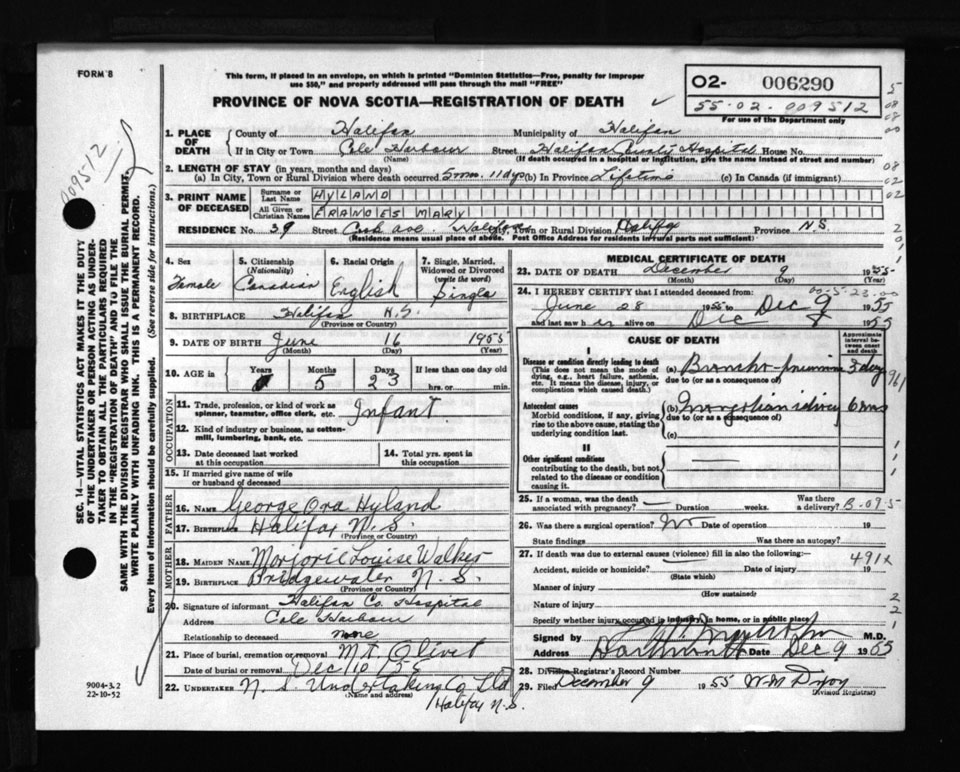 FORM 8
This form, if placed in an envelope, on which is printed "Dominion Statistics—Free, penalty for improper
use $50," and properly addressed will pass through the mail "FREE"
PROVINCE OF NOVA SCOTIA—REGISTRATION OF DEATH
02- 006290
55-02-009512
For use of the Department only
009512
1. PLACE OF DEATH
County of Halifax Municipality of Halifax
If in City or Town Cole Harbour Street Halifax County Hospital House No.
(Name) (If death occurred in a hospital or institution, give the name instead of street and number)
2. LENGTH OF STAY (in years, months and days)
(a) In City, Town or Rural Division where death occurred 5 mos. 11 dys (b) In Province Lifetime (c) In Canada (if immigrant)
3. PRINT NAME OF DECEASED
Surname or Last Name HYLAND
All Given or Christian Names FRANCES MARY
RESIDENCE No. 39 Street Cook Ave. Halifax City, Town or Rural Division Halifax Province N.S.
(Residence means usual place of abode. Post Office Address for residents in rural parts not sufficient)
4. Sex Female
5. Citizenship (Nationality) Canadian
6. Racial Origin English
7. Single, Married, Widowed or Divorced (write the word) Single
8. BIRTHPLACE Halifax N.S.
(Province or Country)
9. DATE OF BIRTH June 16 1955
(Month) (Day) (Year)
10. AGE in Years Months 5 Days 23 If less than one day
hrs. or min.
OCCUPATION
11. Trade, profession, or kind of work as spinner, teamster, office clerk, etc. Infant
12. Kind of industry or business, as cotton-mill, lumbering, bank, etc.
13. Date deceased last worked at this occupation
14. Total yrs. spent in this occupation
15. If married give name of wife or husband of deceased
FATHER
16. Name George Ora Hyland
17. Birthplace Halifax N.S.
(Province or Country)
MOTHER
18. Maiden Name Marjorie Louise Walker
19. Birthplace Bridgewater N.S.
(Province or Country)
20. Signature of informant Halifax Co. Hospital
Address Cole Harbour
Relationship to deceased none
21. Place of burial, cremation or removal Mt. Olivet
Date of burial or removal Dec 10/55
22. UNDERTAKER N. S. Undertaking Co Ltd
(Name and address)
Halifax N.S.
MEDICAL CERTIFICATE OF DEATH
23. DATE OF DEATH December 9 1955
(Month) (Day) (Year)
24. I HEREBY CERTIFY that I attended deceased from: 00-5-23-00
June 28 1955 to Dec 9 1955
and last saw her alive on Dec 8 1955
CAUSE OF DEATH
Approximate interval between onset and death
I
Disease or condition directly leading to death
(This does not mean the mode of dying, e.g., heart failure, asthenia, etc. It means the disease, injury, or complication which caused death.)
(a) Broncho-pneumonia 3 days
due to (or as a consequence of)
Antecedent causes
Morbid conditions, if any, giving rise to the above cause, stating the underlying condition last.
(b) Mongolian idiocy 6 mos
due to (or as a consequence of)
(c)
II
Other significant conditions
contributing to the death, but not related to the disease or condition causing it.
25. If a woman, was the death associated with pregnancy? Duration weeks. Was there a delivery? B-09-5
26. Was there a surgical operation? No Date of operation 19
State findings Was there an autopsy?
27. If death was due to external causes (violence) fill in also the following:
491X
Accident, suicide or homicide? Date of injury 19
(State which)
Manner of injury
(How sustained)
Nature of injury
Specify whether injury occurred in industry, in home, or in public place
Signed by M.D.
Address Dartmouth Date Dec 9 1955
28. Division Registrar's Record Number
29. Filed December 9 1955 W M Dixon
Division Registrar
SEC. 14—VITAL STATISTICS ACT MAKES IT THE DUTY
OF THE UNDERTAKER OR PERSON ACTING AS UNDER-
TAKER TO OBTAIN ALL THE PARTICULARS REQUIRED
IN THE "REGISTRATION OF DEATH" AND TO FILE THE
SAME WITH THE DIVISION REGISTRAR WHO SHALL ISSUE THE BURIAL PERMIT.
WRITE PLAINLY WITH UNFADING INK. THIS IS A PERMANENT RECORD.
Every item of information should be carefully supplied. (See reverse side for instructions.)
9004-3.2
22-10-52